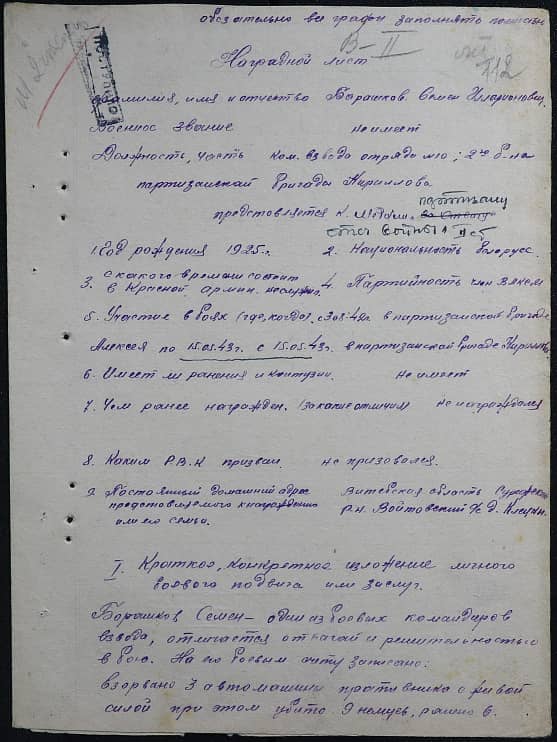 обязательно все графы заполнять полностью
В-II
112
Наградной лист
Фамилия, имя и отчество Барашков Семен Илларионович
Военное звание не имеет
Должность, часть ком. взвода отряда №10; 2го б-на
партизанской бригады Кириллова
представляется к. Медали партизану
отеч войны 1 ст
1. Год рождения 1925г. 2. Национальность белорусс.
3. с какого времени состоит 4. Партийность член ВЛКСМ
в Красной армии. не служил.
5. Участие в боях (где, когда). с 3.08.42г. в партизанской бригаде
Алексея по 15.05.43г. с 15.05.43г. в партизанской бригаде Кириллова
6. Имеет ли ранения и контузии. не имеет
7. Чем ранее награжден. (за какие отличия) не награждался
8. Каким Р.В.К призван. не призовался.
9. Постоянный домашний адрес Витебская область Суражский
представляемого к награждению р-н. Войтовский с/с д.
или его семьи.
I. Краткое, конкретное изложение личного
боевого подвига или заслуг.
Борошков Семен - один из боевых командиров
взвода, отличается отвагай и решительностью
в бою. На его боевым счету записано:
взорвано 3 автомашини противника с живой
силой при этом убито 9 немцев, ранино 6.